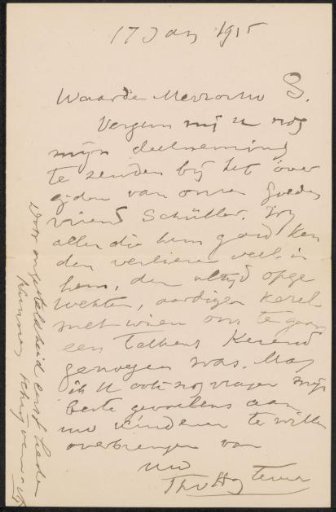 17 Jan 1915
Waarde Mevrouw S.
Vergun mij u nog
mijn deelneming
te zenden bij het over
gaan van onzen goeden
vriend Schüller. Wij
allen die hem goed ken
den verliezen veel in
hem, den altijd opge
wekten, aardigen kerel
met wien om te gaan
een talkens
genoegen was. Mag
ik U ook nog vragen mijn
beste gevoelens aan
uw kinderen te willen
overbrengen van
uw
Door ongesteldheid eerst heden
kunnen schrijven